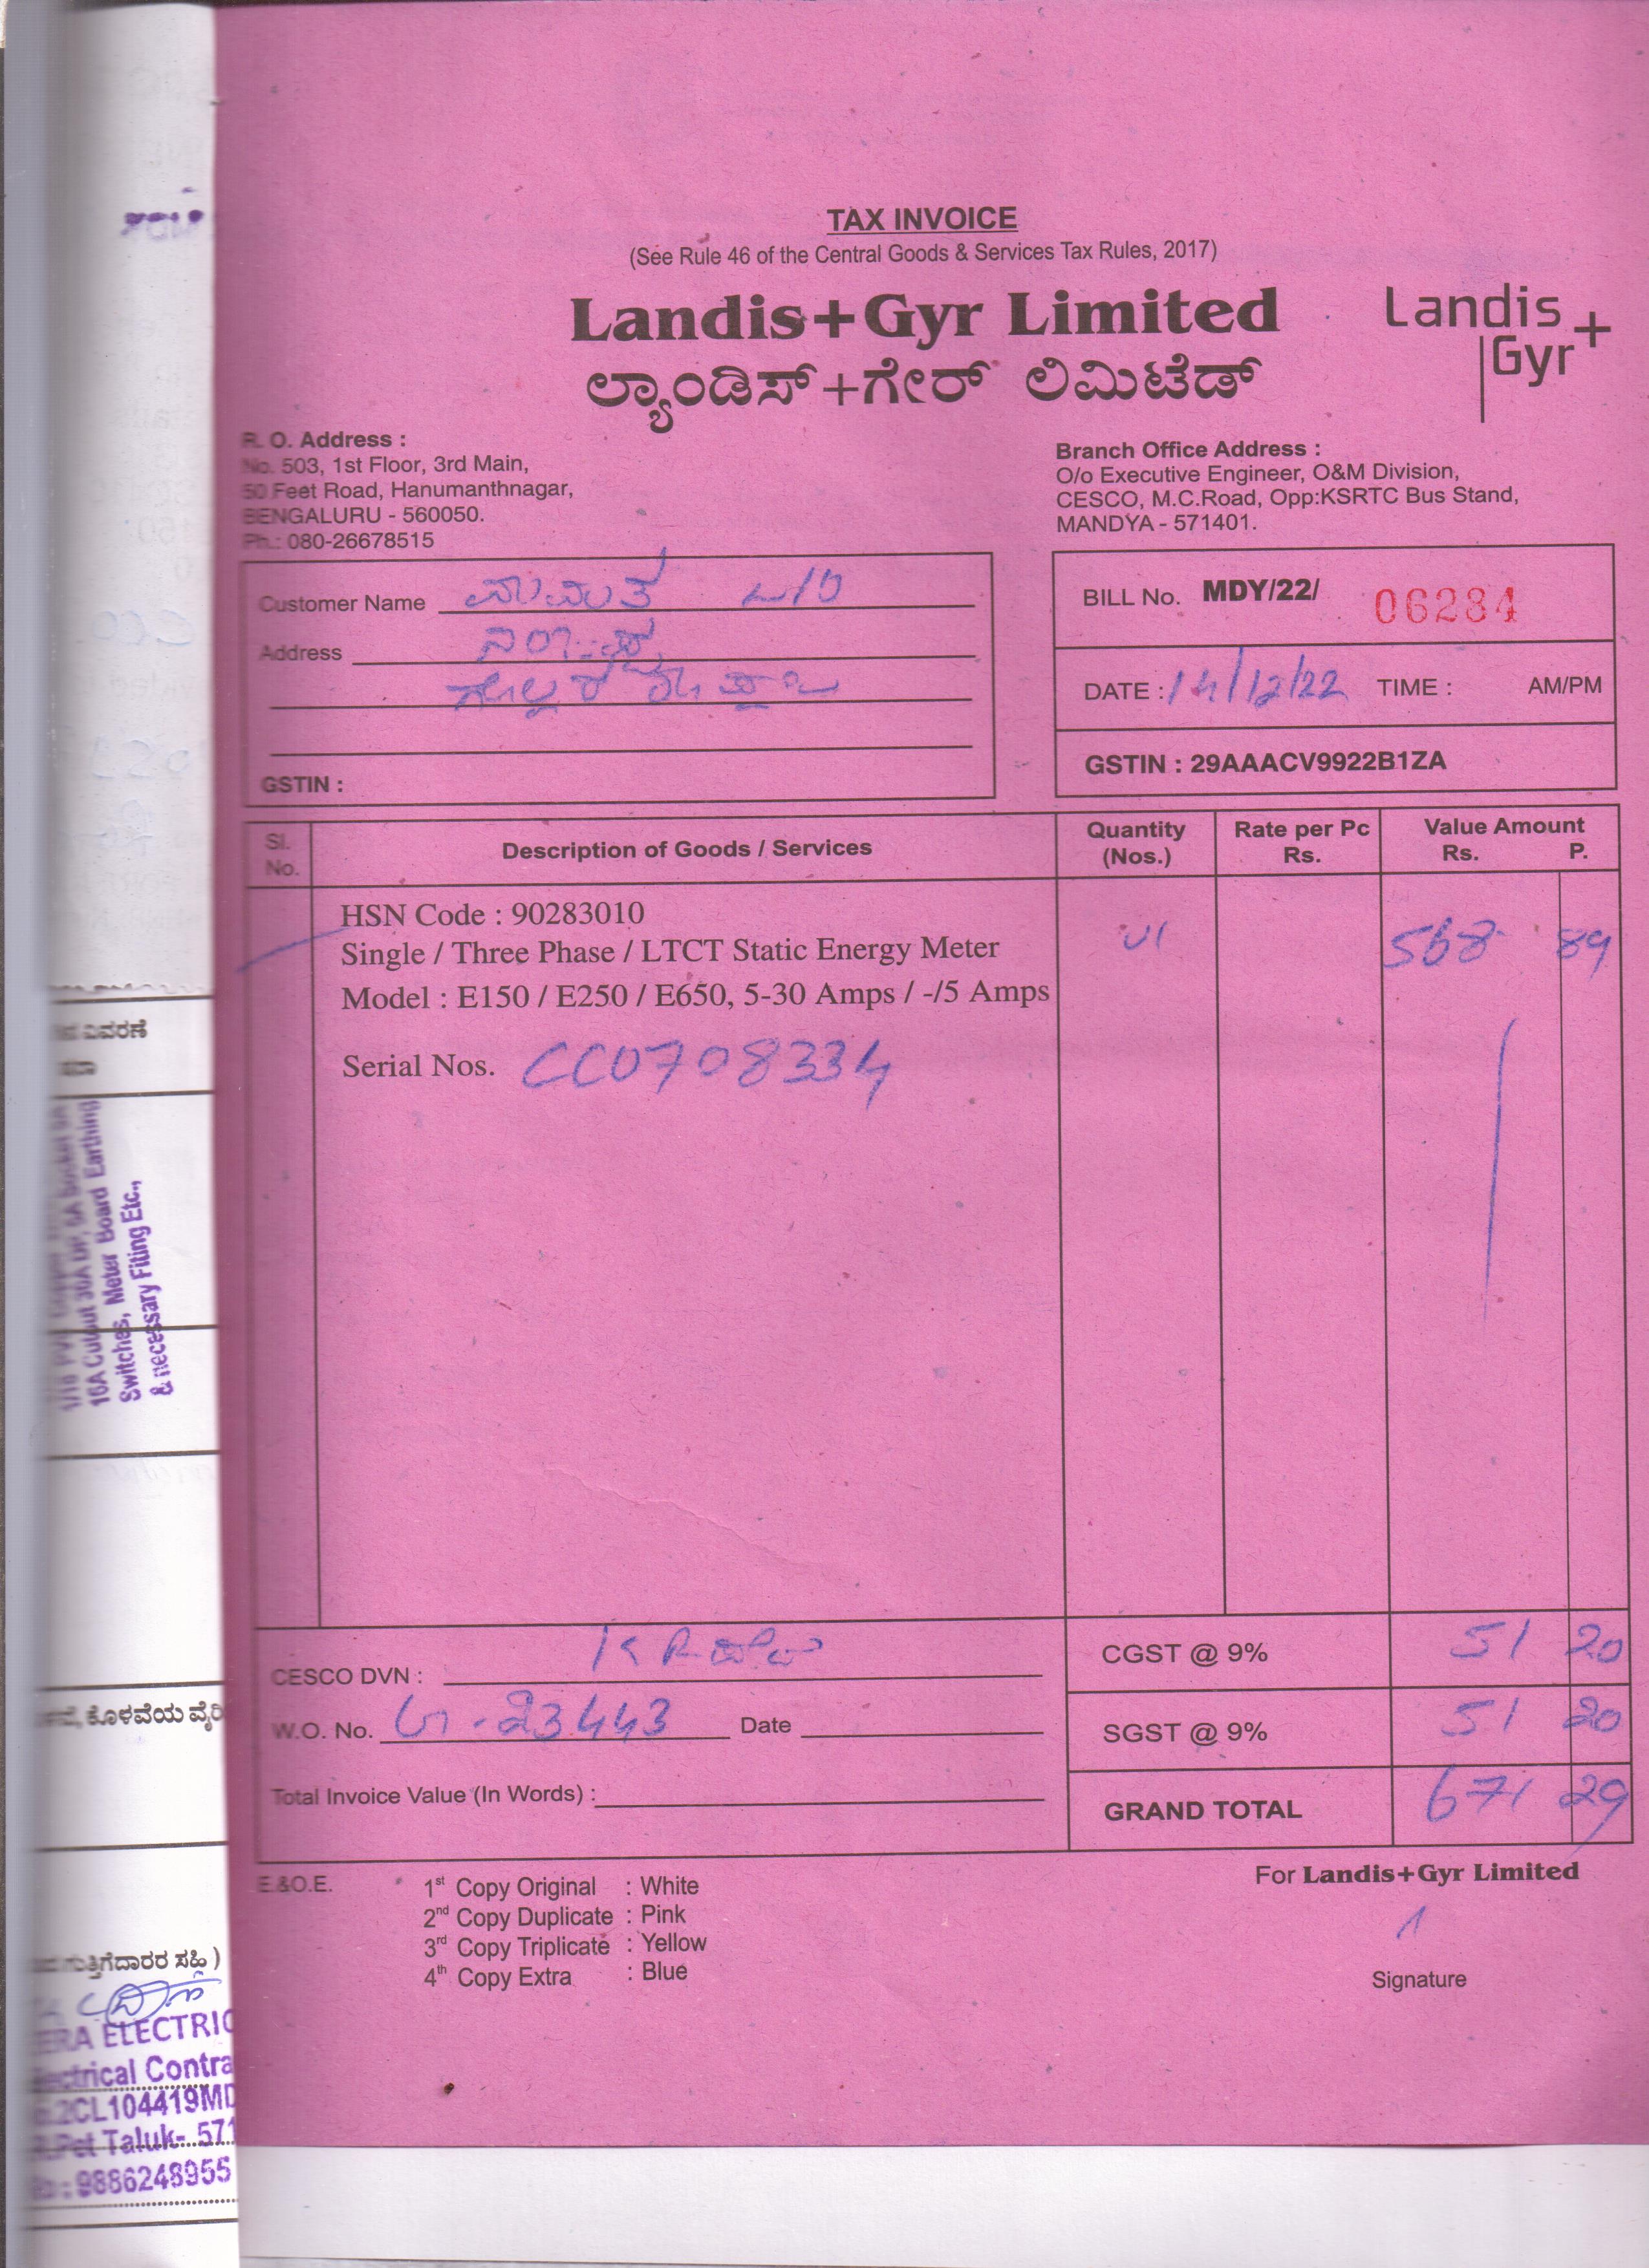 TAX INVOICE
(See Rule 46 of the Central Goods & Services Tax Rules, 2017)
Landis+Gyr Limited
ಲ್ಯಾಂಡಿಸ್+ಗೇರ್ ಲಿಮಿಟೆಡ್
Landis
Gyr+
R. O. Address :
No. 503, 1st Floor, 3rd Main,
50 Feet Road, Hanumanthnagar,
BENGALURU - 560050.
Ph.: 080-26678515
Branch Office Address :
O/o Executive Engineer, O&M Division,
CESCO, M.C.Road, Opp:KSRTC Bus Stand,
MANDYA - 571401.
Customer Name
Address
GSTIN :
BILL No. MDY/22/ 06284
DATE : 14/12/22 TIME : AM/PM
GSTIN : 29AAACV9922B1ZA
Sl. No. Description of Goods / Services Quantity (Nos.) Rate per Pc Rs. Value Amount Rs. P.
HSN Code : 90283010
Single / Three Phase / LTCT Static Energy Meter 01 568 89
Model : E150 / E250 / E650, 5-30 Amps / -/5 Amps
Serial Nos. CC0708334
CESCO DVN :
CGST @ 9% 51 20
W.O. No. 23443 Date
SGST @ 9% 51 20
Total Invoice Value (In Words) :
GRAND TOTAL 671 29
E.&O.E.
1st Copy Original : White
2nd Copy Duplicate : Pink
3rd Copy Triplicate : Yellow
4th Copy Extra : Blue
For Landis+Gyr Limited
Signature
ವಿವರಣೆ
16A Cutout 30A DP, 5A
Switches, Meter Board Earthing
& necessary Fiting Etc.,
ಕೊಳವೆಯ
ಗುತ್ತಿಗೆದಾರರ ಸಹಿ )
ERA ELECTRIC
Electrical Contra
2CL104419MD
Pet Taluk- 571
: 9886248955